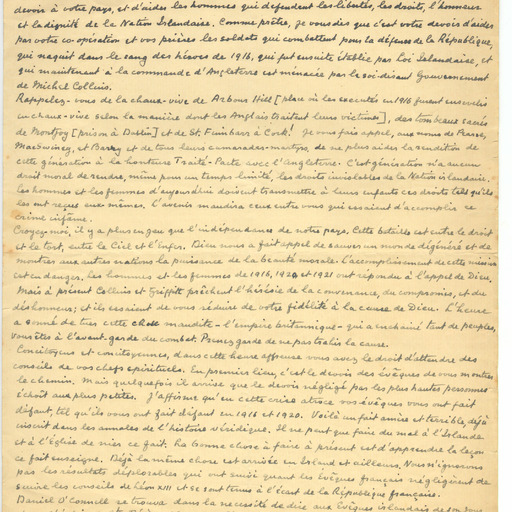 devoir à votre pays, et d'aider les hommes qui défendent les libertés, les droits, l'honneur
et la dignité de la Nation Islandaise. Comme prêtre, je vous dis que c'est votre devoir d'aider
par votre co-opération et vos prières les soldats qui combattent pour la défense de la République,
qui naquit dans le sang des héros de 1916, qui fut ensuite établie par Loi Islandaise, et
qui maintenant à la commande d'Angleterre est menacée par le soi-disant Gouvernement
de Michel Collins.
Rappelez-vous de la chaux-vive de Arbour Hill [place où les executés en 1916 furent ensevelis
en chaux-vive selon la manière dont les Anglais traitent leurs victimes], des tombeaux
de Montjoy [prison à Dublin] et de St Finnbarr à Cork! Je vous fais appel, aux noms de Pearse,
MacSwiney, et Barry et de tous leurs camarades-martyrs, de ne plus aider la reddition de
cette génération à la honteuse Traité-Pacte avec l'Angleterre. Cette génération n'a aucun
droit moral de rendre, même pour un temps limité, les droits inviolables de la Nation islandaise.
Les hommes et les femmes d'aujourd'hui doivent transmettre à leurs enfants ces droits tels qu'ils
les ont reçus eux mêmes. L'avenir maudira ceux entre vous qui essaient d'accomplir ce
crime infâme.
Croyez-moi, il y a plus en jeu que l'indépendance de notre pays. Cette bataille est entre le droit
et le tort, entre le Ciel et l'Enfer. Dieu nous a fait appel de sauver un monde dégénéré et de
montrer aux autres nations la puissance de la beauté morale. L'accomplissement de cette mission
est en danger. Les hommes et les femmes de 1916, 1920 et 1921 ont répondu à l'appel de Dieu.
Mais à présent Collins et Griffith prêchent l'hérésie de la convenance, du compromis, et du
déshonneur; et ils essaient de vous séduire de votre fidélité à la cause de Dieu. L'heure
a sonné de tuer cette chose maudite - l'empire britannique - qui a enchaîné tant de peuples.
Vous êtes à l'avant-garde du combat. Prenez garde de ne pas trahir la cause.
Concitoyens et concitoyennes, dans cette heure affreuse vous avez le droit d'attendre des
conseils de vos chefs spirituels. En premier lieu, c'est le devoir des évêques de vous montrer
le chemin. Mais quelquefois il arrive que le devoir négligé par les plus hautes personnes
échoit aux plus petites. J'affirme qu'en cette crise atroce vos évêques vous ont fait
défaut, tel qu'ils vous ont fait défaut en 1916 et 1920. Voilà un fait amer et terrible, déjà
inscrit dans les annales de l'histoire véridique. Il ne peut que faire du mal à l'Islande
et à l'Église de nier ce fait. La bonne chose à faire à présent est d'apprendre la leçon
ce fait enseigne. Déjà la même chose est arrivée en Irland et ailleurs. Nous n'ignorons
pas les résultats déplorables qui ont suivi quant les Évêques français négligèrent de
suivre les conseils de Léon XIII et se sont tenus à l'écart de la République française.
Daniel O'Connell se trouva dans la nécessité de dire aux Évêques islandais de son